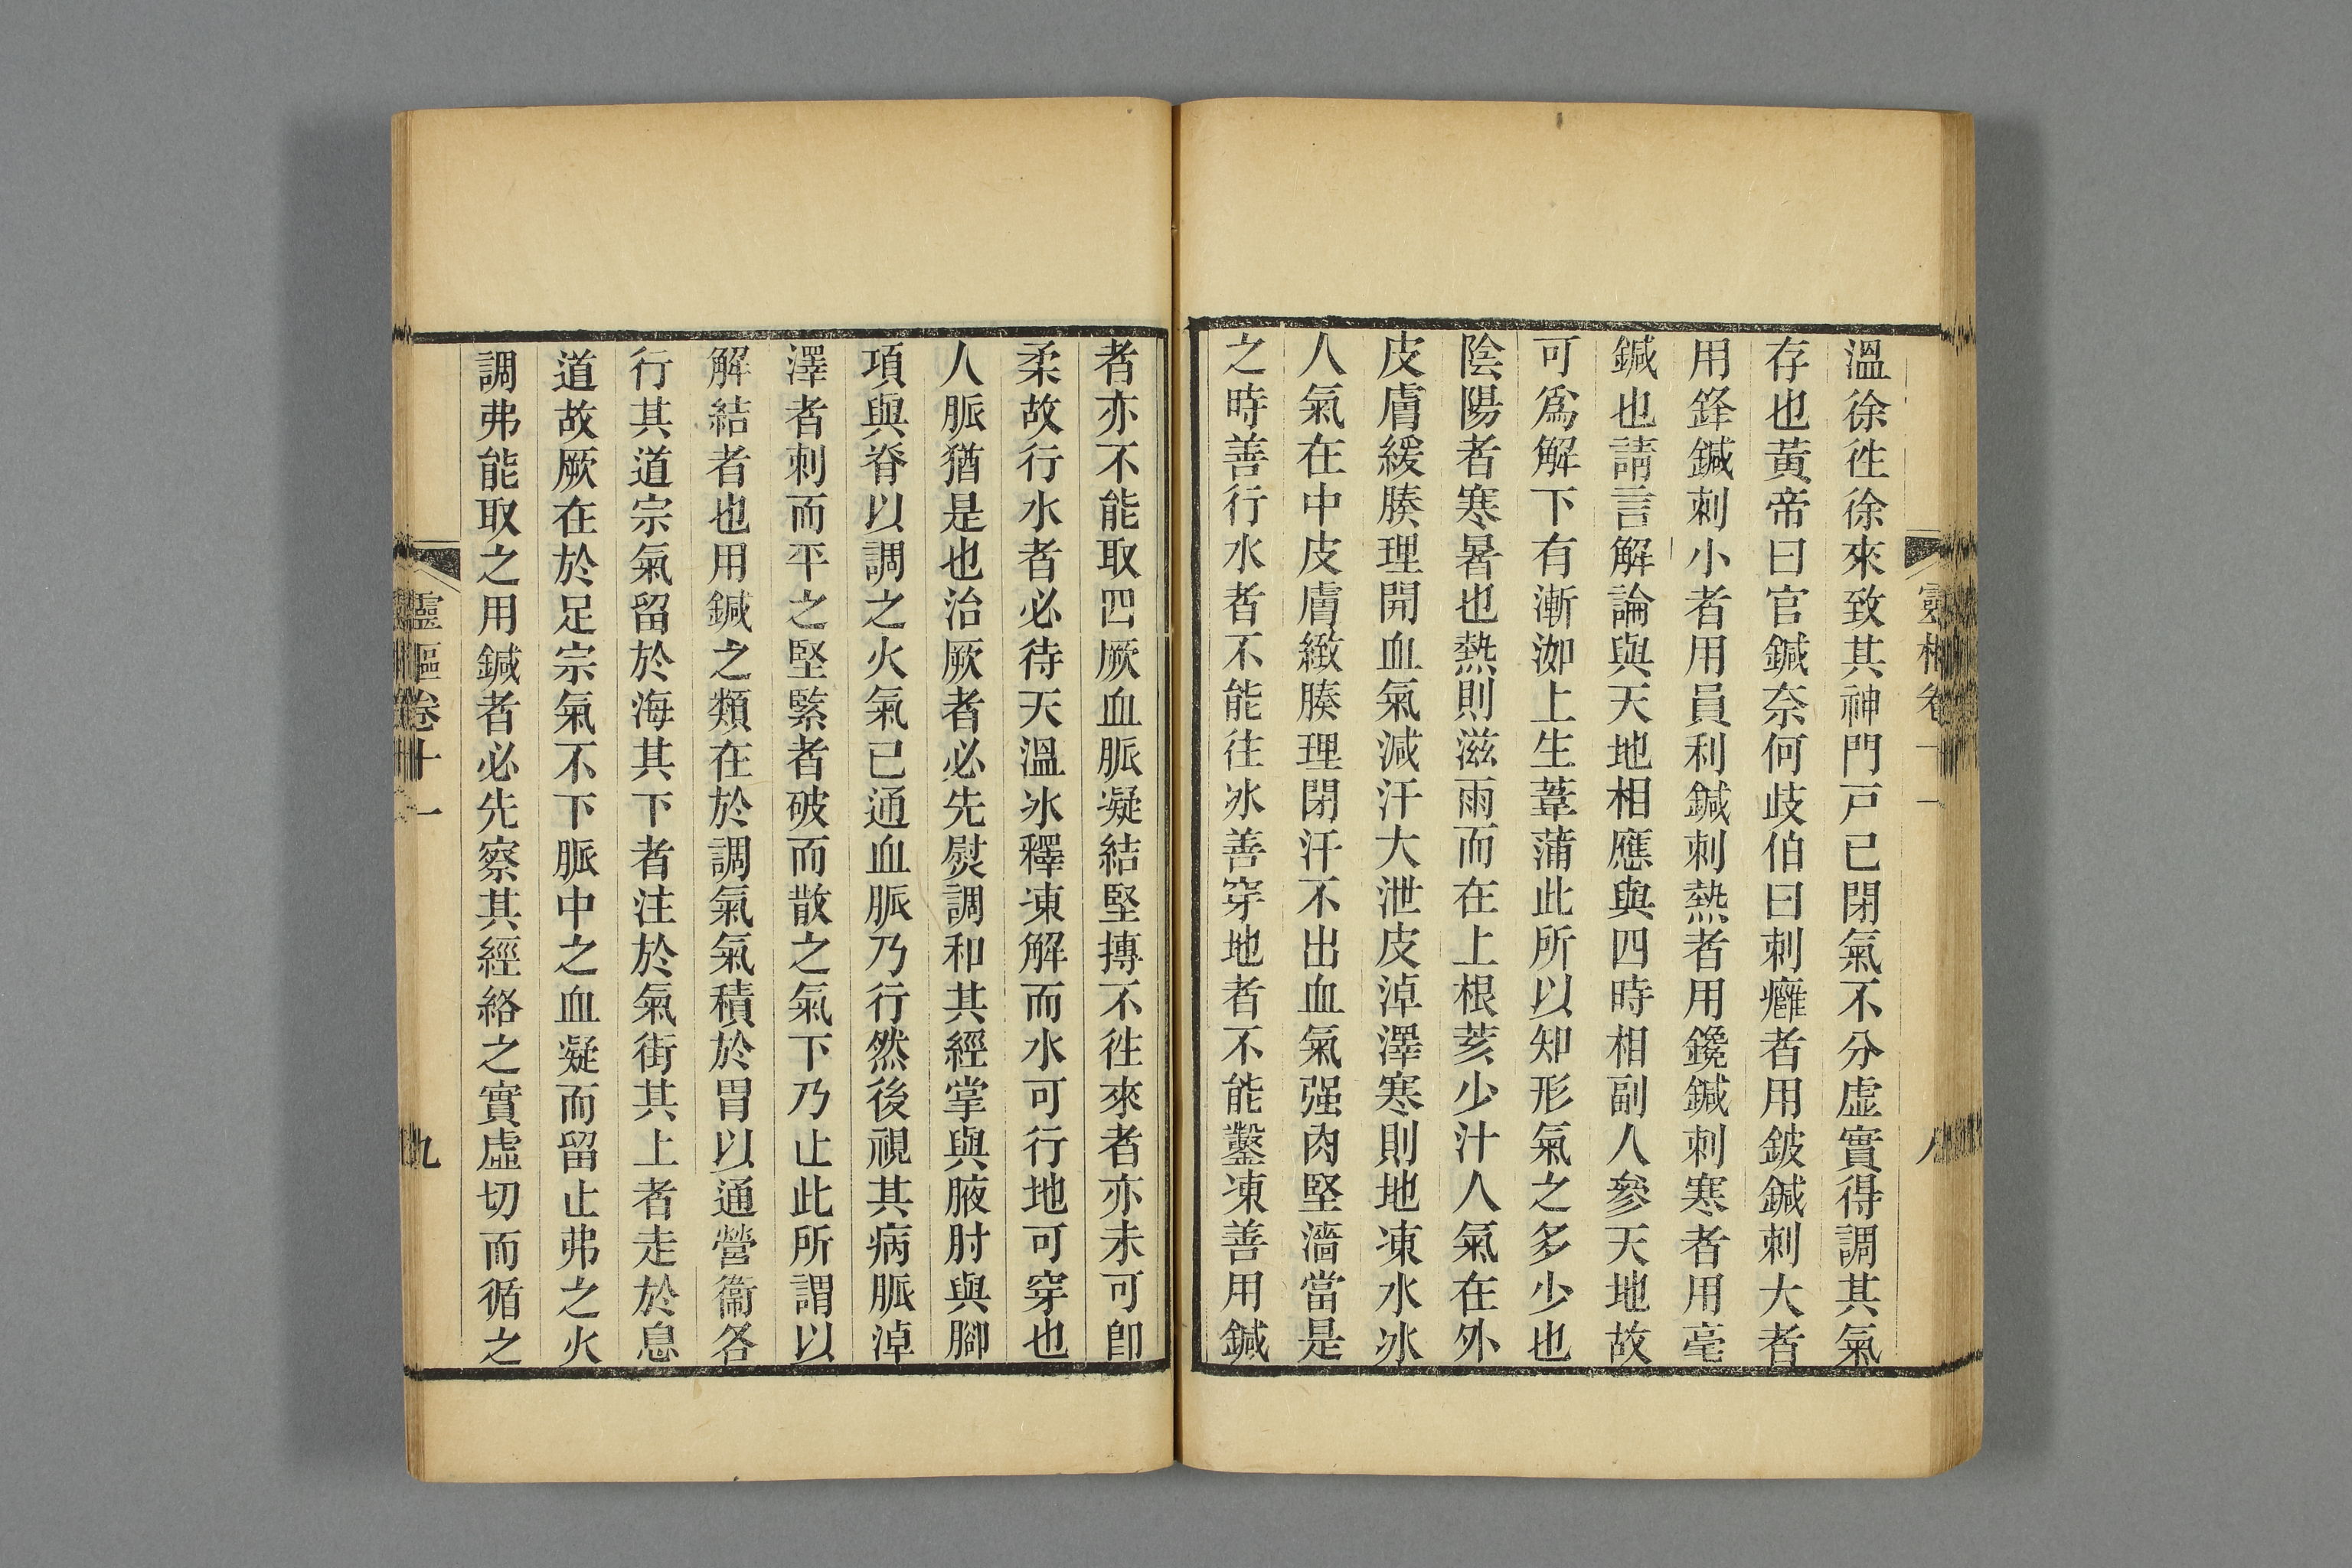 靈樞卷十一
八
溫徐徃徐來致其神門戸已閉氣不分虛實得調其氣
存也黃帝曰官鍼奈何歧伯曰刺癰者用鈹鍼刺大者
用鋒鍼刺小者用員利鍼刺熱者用鑱鍼刺寒者用毫
鍼也請言解論與天地相應與四時相副人參天地故
可爲解下有漸洳上生葦蒲此所以知形氣之多少也
陰陽者寒暑也熱則滋雨而在上根荄少汁人氣在外
皮膚緩腠理開血氣減汗大泄皮淖澤寒則地凍水冰
人氣在中皮膚緻腠理閉汗不出血氣强肉堅濇當是
之時善行水者不能往冰善穿地者不能鑿凍善用鍼
者亦不能取四厥血脈凝結堅摶不徃來者亦未可卽
柔故行水者必待天溫冰釋凍解而水可行地可穿也
人脈猶是也治厥者必先熨調和其經掌與腋肘與腳
項與脊以調之火氣已通血脈乃行然後視其病脈淖
澤者刺而平之堅緊者破而散之氣下乃止此所謂以
解結者也用鍼之類在於調氣氣積於胃以通營衞各
行其道宗氣留於海其下者注於氣街其上者走於息
道故厥在於足宗氣不下脈中之血凝而留止弗之火
調弗能取之用鍼者必先察其經絡之實虛切而循之
靈樞卷十一
九